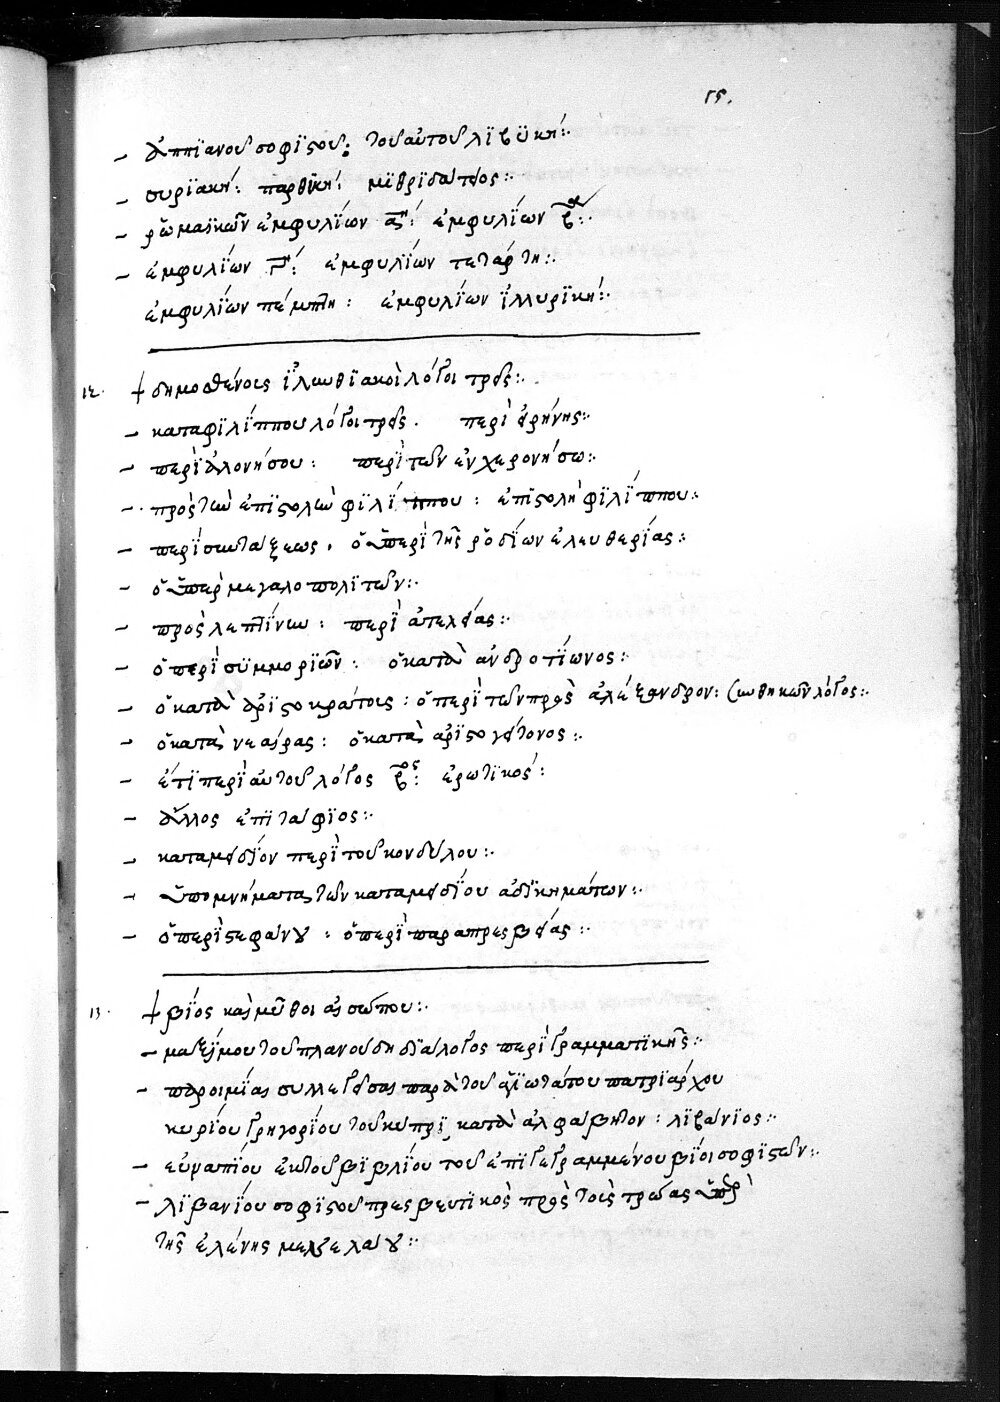 15.
– ἀππϊανοῦ σοφϊστοῦ: τοῦ αὐτοῦ λϊβϋκή:
– συρϊακή: παρθϊκή: μϊθρϊδάτϊος:
– ῥωμαϊκῶν ἐμφυλΐων α^η: ἐμφυλΐων β^α:
– ἐμφυλΐων γ^η: ἐμφυλΐων τετάρτη:
ἐμφυλΐων πέμπτη: ἐμφυλΐων ἰλλυρϊκή:
12. † δημοσθένους ὀλυνθϊακοὶ λόγοι τρεῖς:
– κατα φϊλΐππου λόγοι τρεῖς. περὶ εἰρήνης:
– περὶ ἁλονήσου: περὶ τῶν ἐν χερονήσω:
– προς τὴν ἐπϊστολὴν φϊλΐππου: ἐπϊστολὴ φϊλΐππου:
– περὶ συντάξεως. ὁ ὑπερὶ τῆς ῥοδΐων ἐλευθερίας:
– ὁ ὑπὲρ μεγαλοπολϊτῶν:
– πρὸς λεπτΐνην: περὶ ἀτελείας:
– ὁ περὶ συμμορϊῶν: ὁ κατὰ ἀνδροτΐωνος:
– ὁ κατὰ ἀρϊστοκράτους: ὁ περὶ τῶν πρὸς ἀλέξανδρον: συνθηκῶν λόγος:
– ὁ κατὰ νεαίρας: ὁ κατὰ ἀρϊστογείτονος:
– ἔτϊ περὶ αὐτοῦ λόγος β^ος: ἐρωτϊκός:
– ἄλλος ἐπϊτάφϊος:
– κατα μειδΐου περὶ τοῦ κονδύλου:
– ὑπομνήματα τῶν κατα μειδΐου ἀδϊκημάτων:
– ὁ περὶ στεφάνου: ὁ περὶ παραπρεσβείας:
13. † βΐος καὶ μῦθοι αἰσώπου:
– μαξΐμου τοῦ πλανούδη δϊάλογος περὶ γραμματϊκῆς:
– παροιμΐας συλλεγεῖσας παρὰ τοῦ ἁγϊωτάτου πατρϊάρχου
κυρΐου γρηγορΐου τοῦ κυπρϊ, κατὰ ἀλφάβητον: λϊβάνϊος:
– εὐναπΐου ἐκ τοῦ βϊβλΐου τοῦ ἐπϊγεγραμμένου βΐοι σοφϊστῶν:
– λϊβανΐου σοφϊστοῦ πρεσβευτϊκὸς πρὸς τοὺς τρῶας ὑπὲρ
τῆς ἑλένης μενελάου: